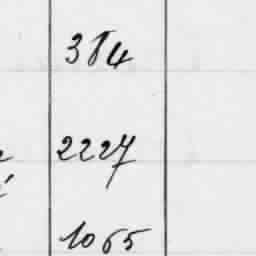 384
2227
1065